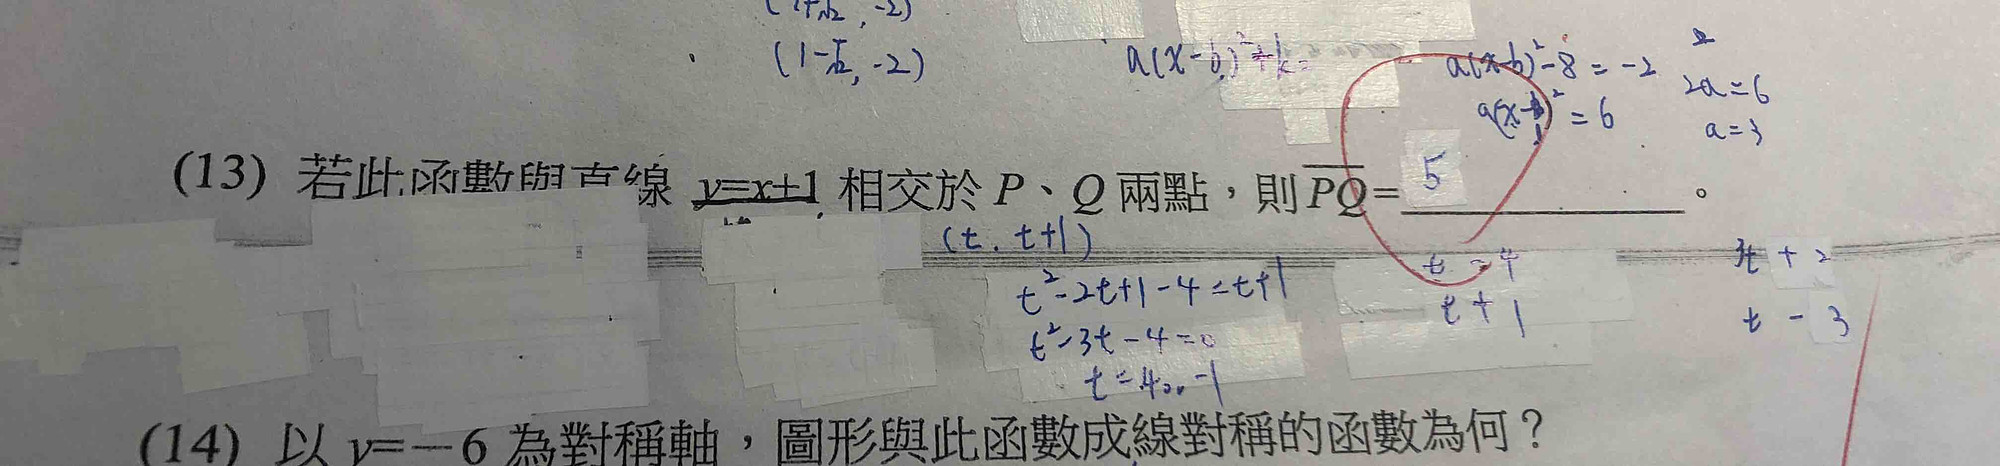 (1+√2, -2)
(1-√2, -2)
a(x-b)²+k=
a(x-b)²-8=-2
a(x-b)²=6
2a=6
a=3
(13) 若此函數與直線 y=x+1 相交於 P、Q 兩點，則 PQ= 5 。
(t, t+1)
t²-2t+1-4=t+1
t²-3t-4=0
t=4or-1
t -4
t +1
3t +2
t -3
(14) 以 y=-6 為對稱軸，圖形與此函數成線對稱的函數為何？